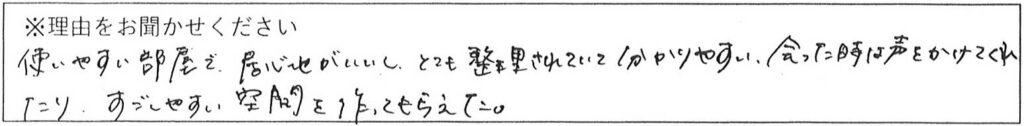 ※理由をお聞かせください
使いやすい部屋で、居心地がいいし、とても整理されていて分かりやすい、会った時は声をかけてくれ
たり、すごしやすい空間を作ってもらえた。